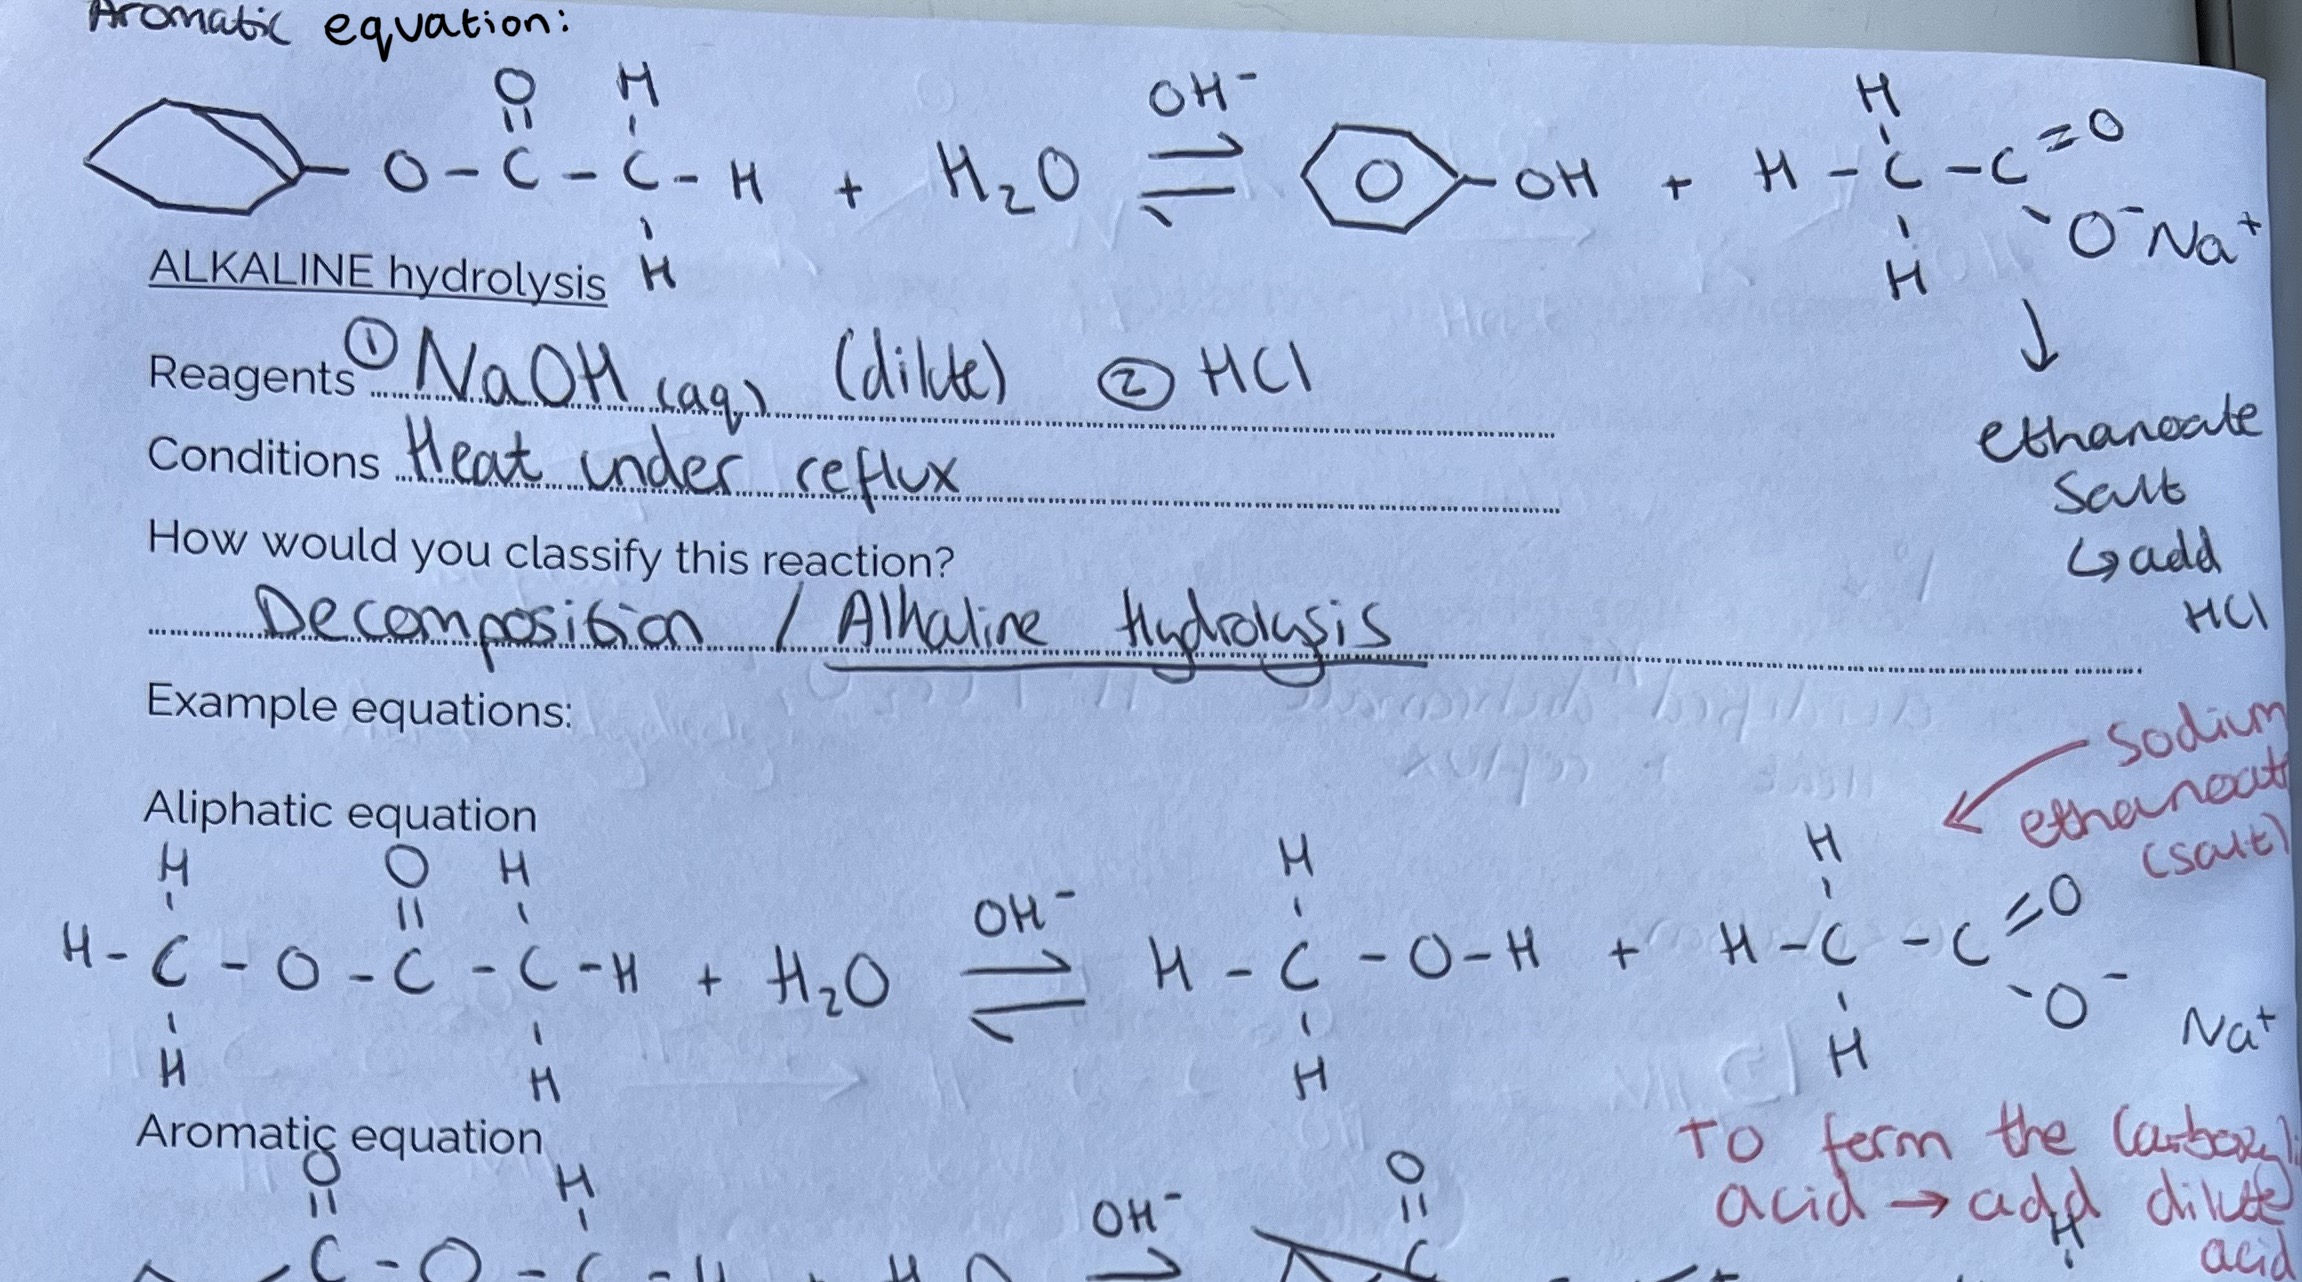 Aromatic equation:
O H OH⁻ H
O - C - C - H + H₂O ⇌ OH + H - C - C = O
H H O⁻ Na⁺
ALKALINE hydrolysis
Reagents ① NaOH (aq) (dilute) ② HCl
Conditions Heat under reflux
↓
ethanoate
Salt
↳ add
HCl
How would you classify this reaction?
Decomposition / Alkaline Hydrolysis
Example equations:
Sodium
ethanoate
(salt)
Aliphatic equation
H O H OH⁻ H H
H - C - O - C - C - H + H₂O ⇌ H - C - O - H + H - C - C = O
H H H H O⁻ Na⁺
Aromatic equation
To form the
acid → add dilute
acid
O H OH⁻ O H
C - O - C - H + C